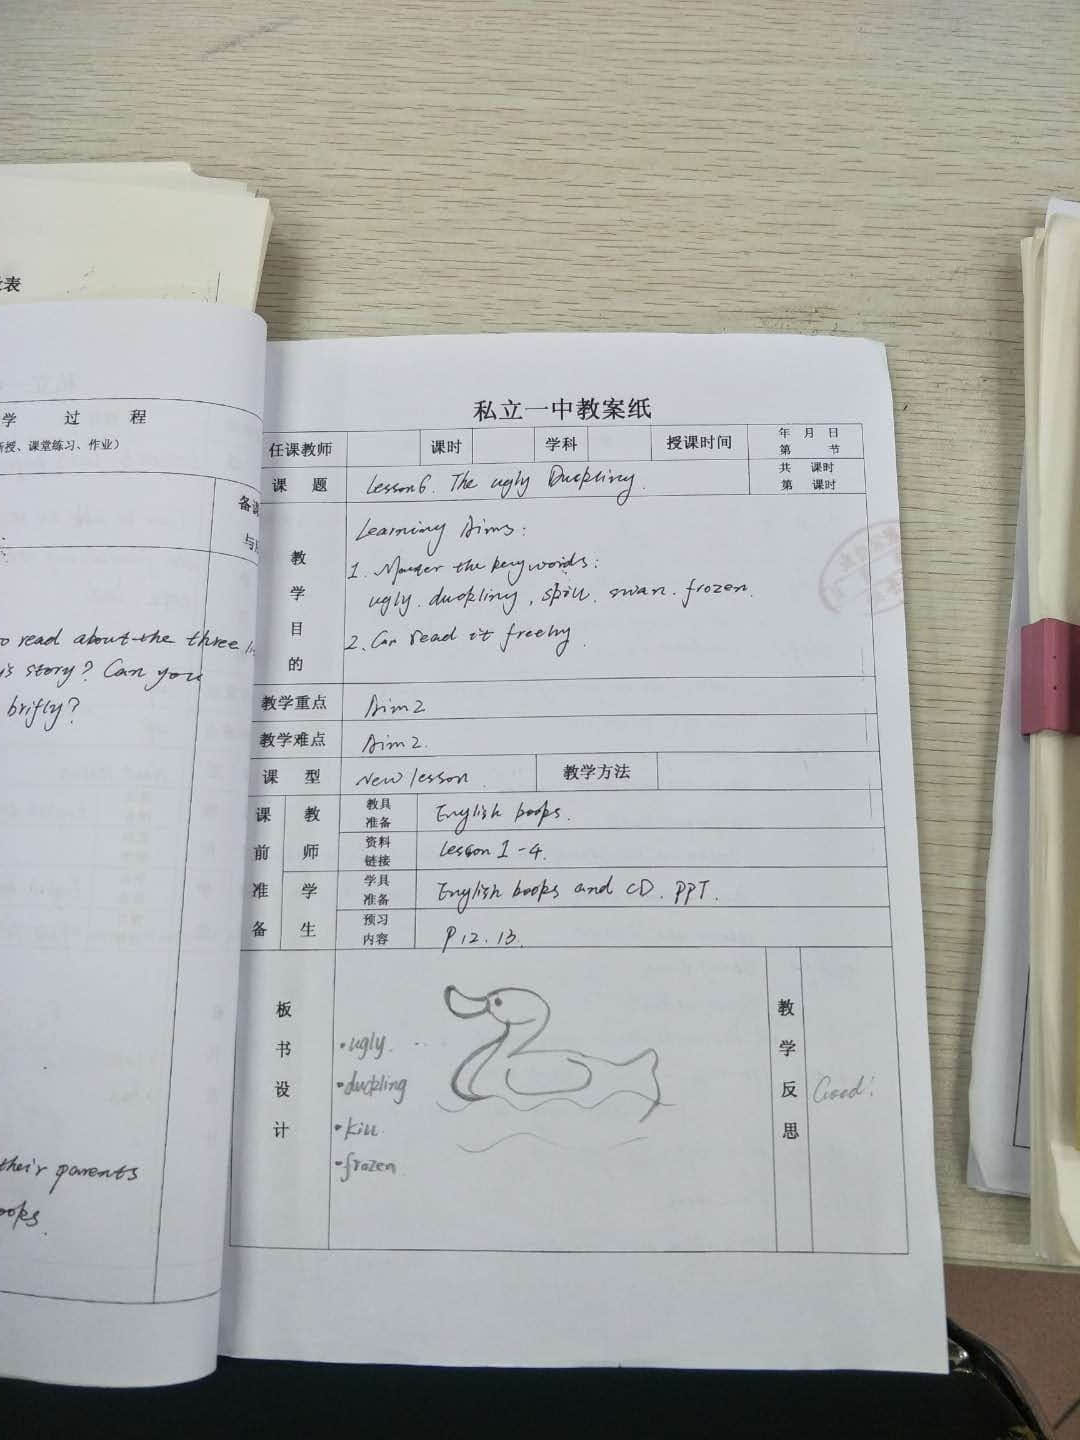 表
学 过 程
授、课堂练习、作业）
备课
o read about the three
's story? Can you
brifly?
their parents
ooks.
私立一中教案纸
任课教师 课时 学科 授课时间 年 月 日
第 节
课 题 Lesson 6. The ugly Duckling. 共 课时
第 课时
教学目的
Learning Aims:
1. Master the key words:
ugly. duckling, swan. frozen.
2. Can read it
教学重点 Aim 2
教学难点 Aim 2.
课 型 New lesson. 教学方法
课前准备
教师
教具准备 English books.
资料链接 Lesson 1-4.
学生
学具准备 English books and CD. PPT.
预习内容 P12. 13.
板书设计
•ugly.
•duckling
•kill
•frozen
教学反思
Good!